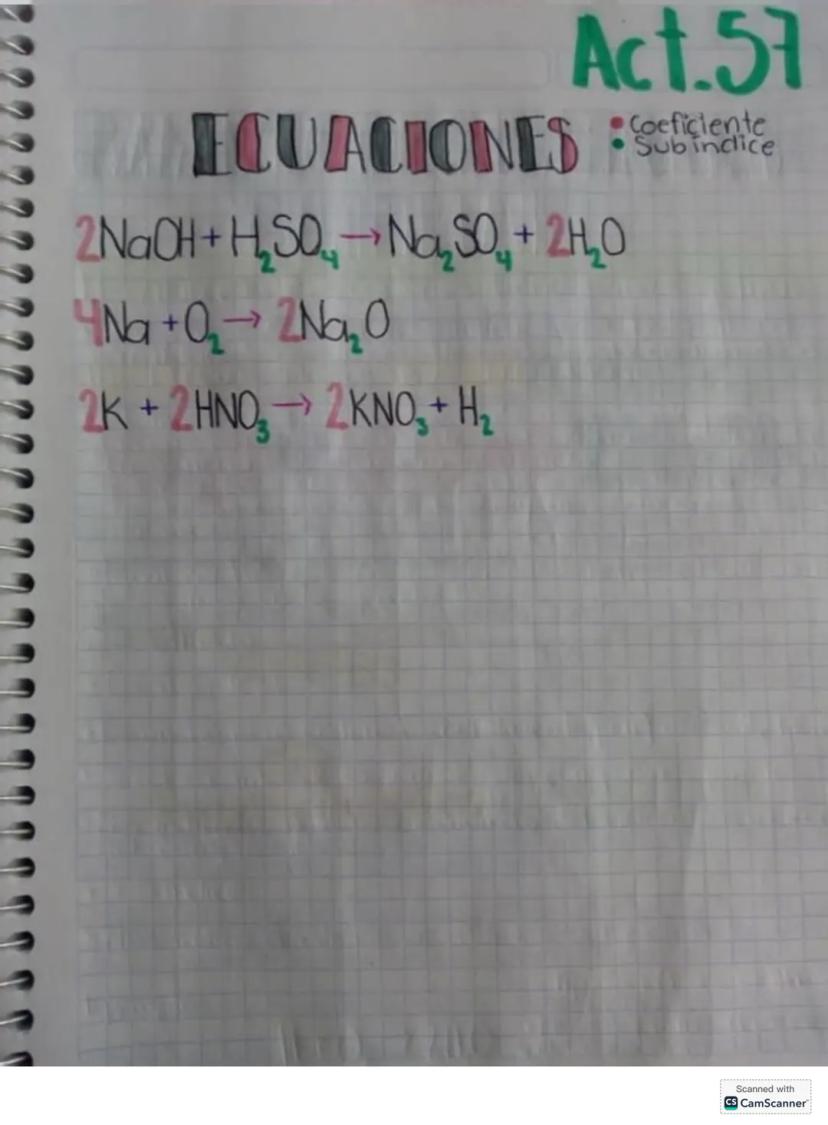 Act.57
ECUACIONES
• Coeficiente
• Subindice
2NaOH + H₂SO₄ → Na₂SO₄ + 2H₂O
4Na + O₂ → 2Na₂O
2K + 2HNO₃ → 2KNO₃ + H₂
Scanned with
CS CamScanner